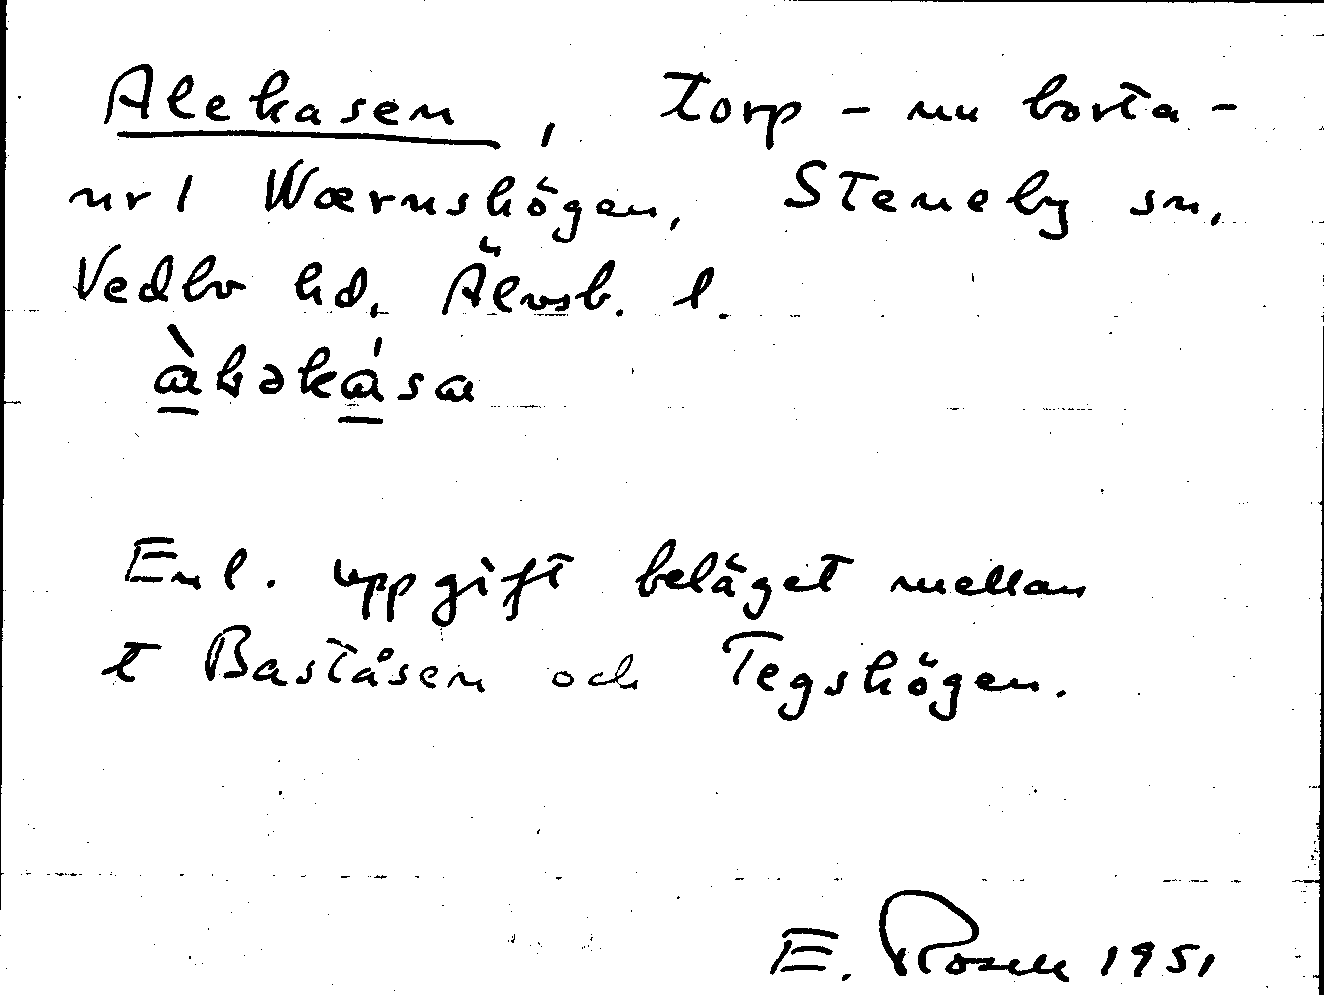 Alekasen, torp - nu borta -
nr 1 Wærnshögen, Steneby sn,
Vedbo hd, Älvsb. l.
Enl. uppgift beläget mellan
t Baståsen och Tegshögen.
E. Rosell 1951